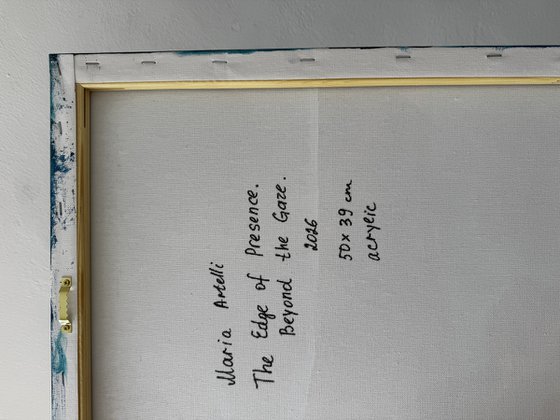 Maria Artelli
The Edge of Presence.
Beyond the Gaze.
2026
50x39 cm
acrylic